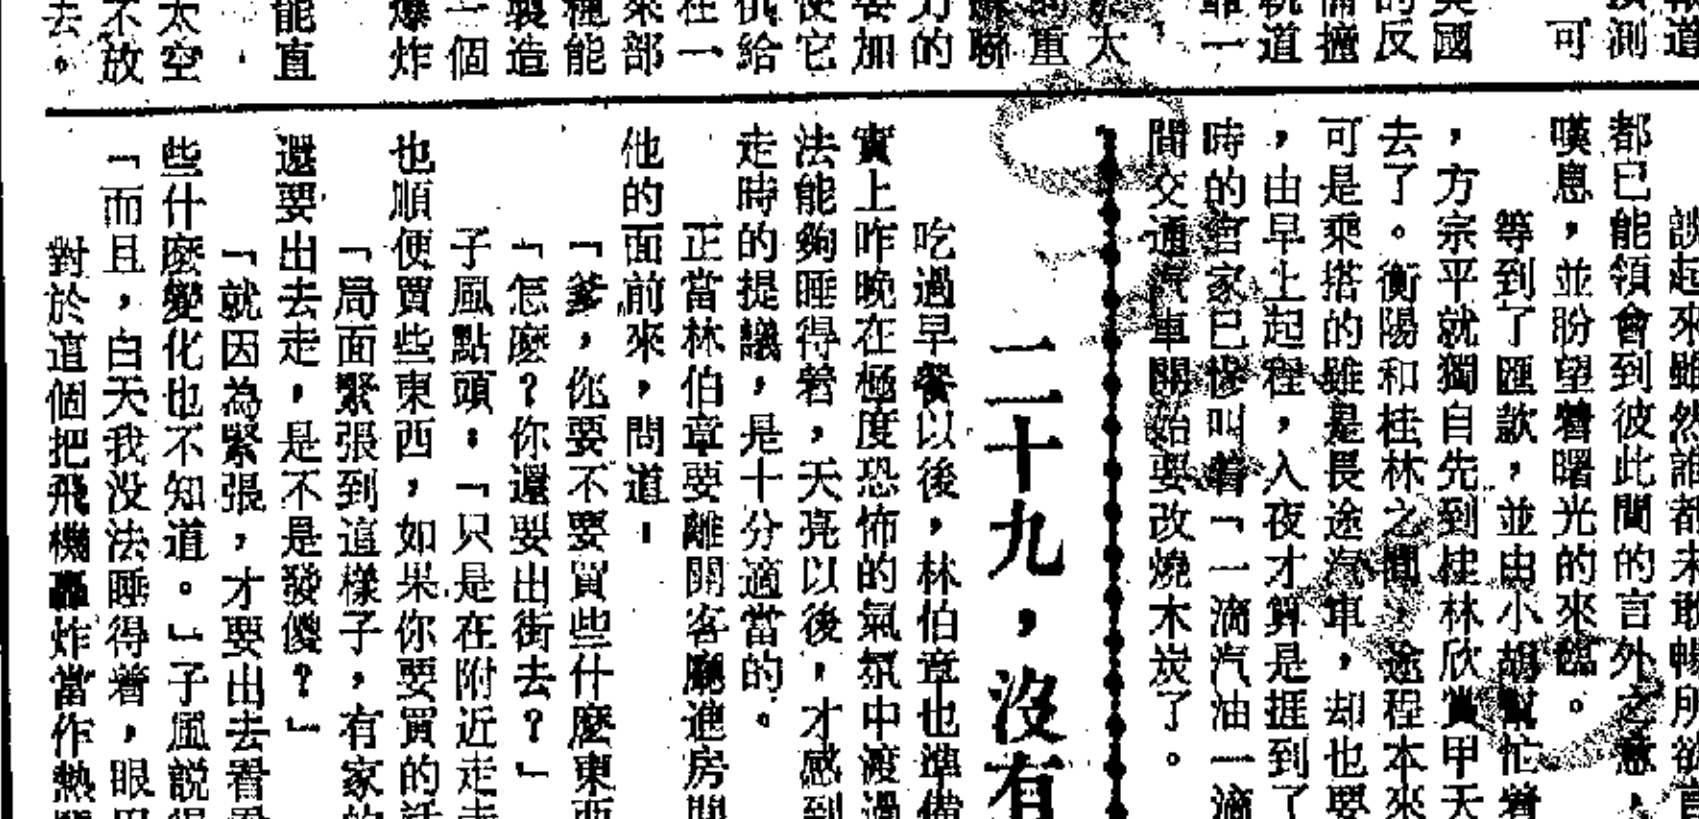 報道
預測
可
英國
的反
備撞
軌道
靠一
太
的重
蘇聯
力的
要加
使它
供給
在一
來部
種能
製造
一個
爆炸
能直
太空
不放
去。
談起來雖然誰都未敢暢所欲言
都已能領會到彼此間的言外之意，
嘆息，並盼望着曙光的來臨。
等到了匯款，並由小胡幫忙着
，方宗平就獨自先到桂林欣賞甲天
去了。衡陽和桂林之間，途程本來
可是乘搭的雖是畏途汽車，却也要
，由早上起程，入夜才算是捱到了
時的官家已慘叫着「一滴汽油一滴
間交通汽車開始要改燒木炭了。
二十九，沒有
吃過早餐以後，林伯章也準備
實上昨晚在極度恐怖的氣氛中渡過
法能夠睡得着，天亮以後，才感到
走時的提議，是十分適當的。
正當林伯章要離開客廳進房間
他的面前來，問道：
「爹，你要不要買些什麼東西
「怎麼？你還要出街去？」
子風點頭：「只是在附近走走
也順便買些東西，如果你要買的話
「局面緊張到這樣子，有家的
還要出去走，是不是發傻？」
「就因為緊張，才要出去看看
些什麼變化也不知道。」子風說得
「而且，白天我没法睡得着，眼巴
對於這個把飛機轟炸當作熱鬧